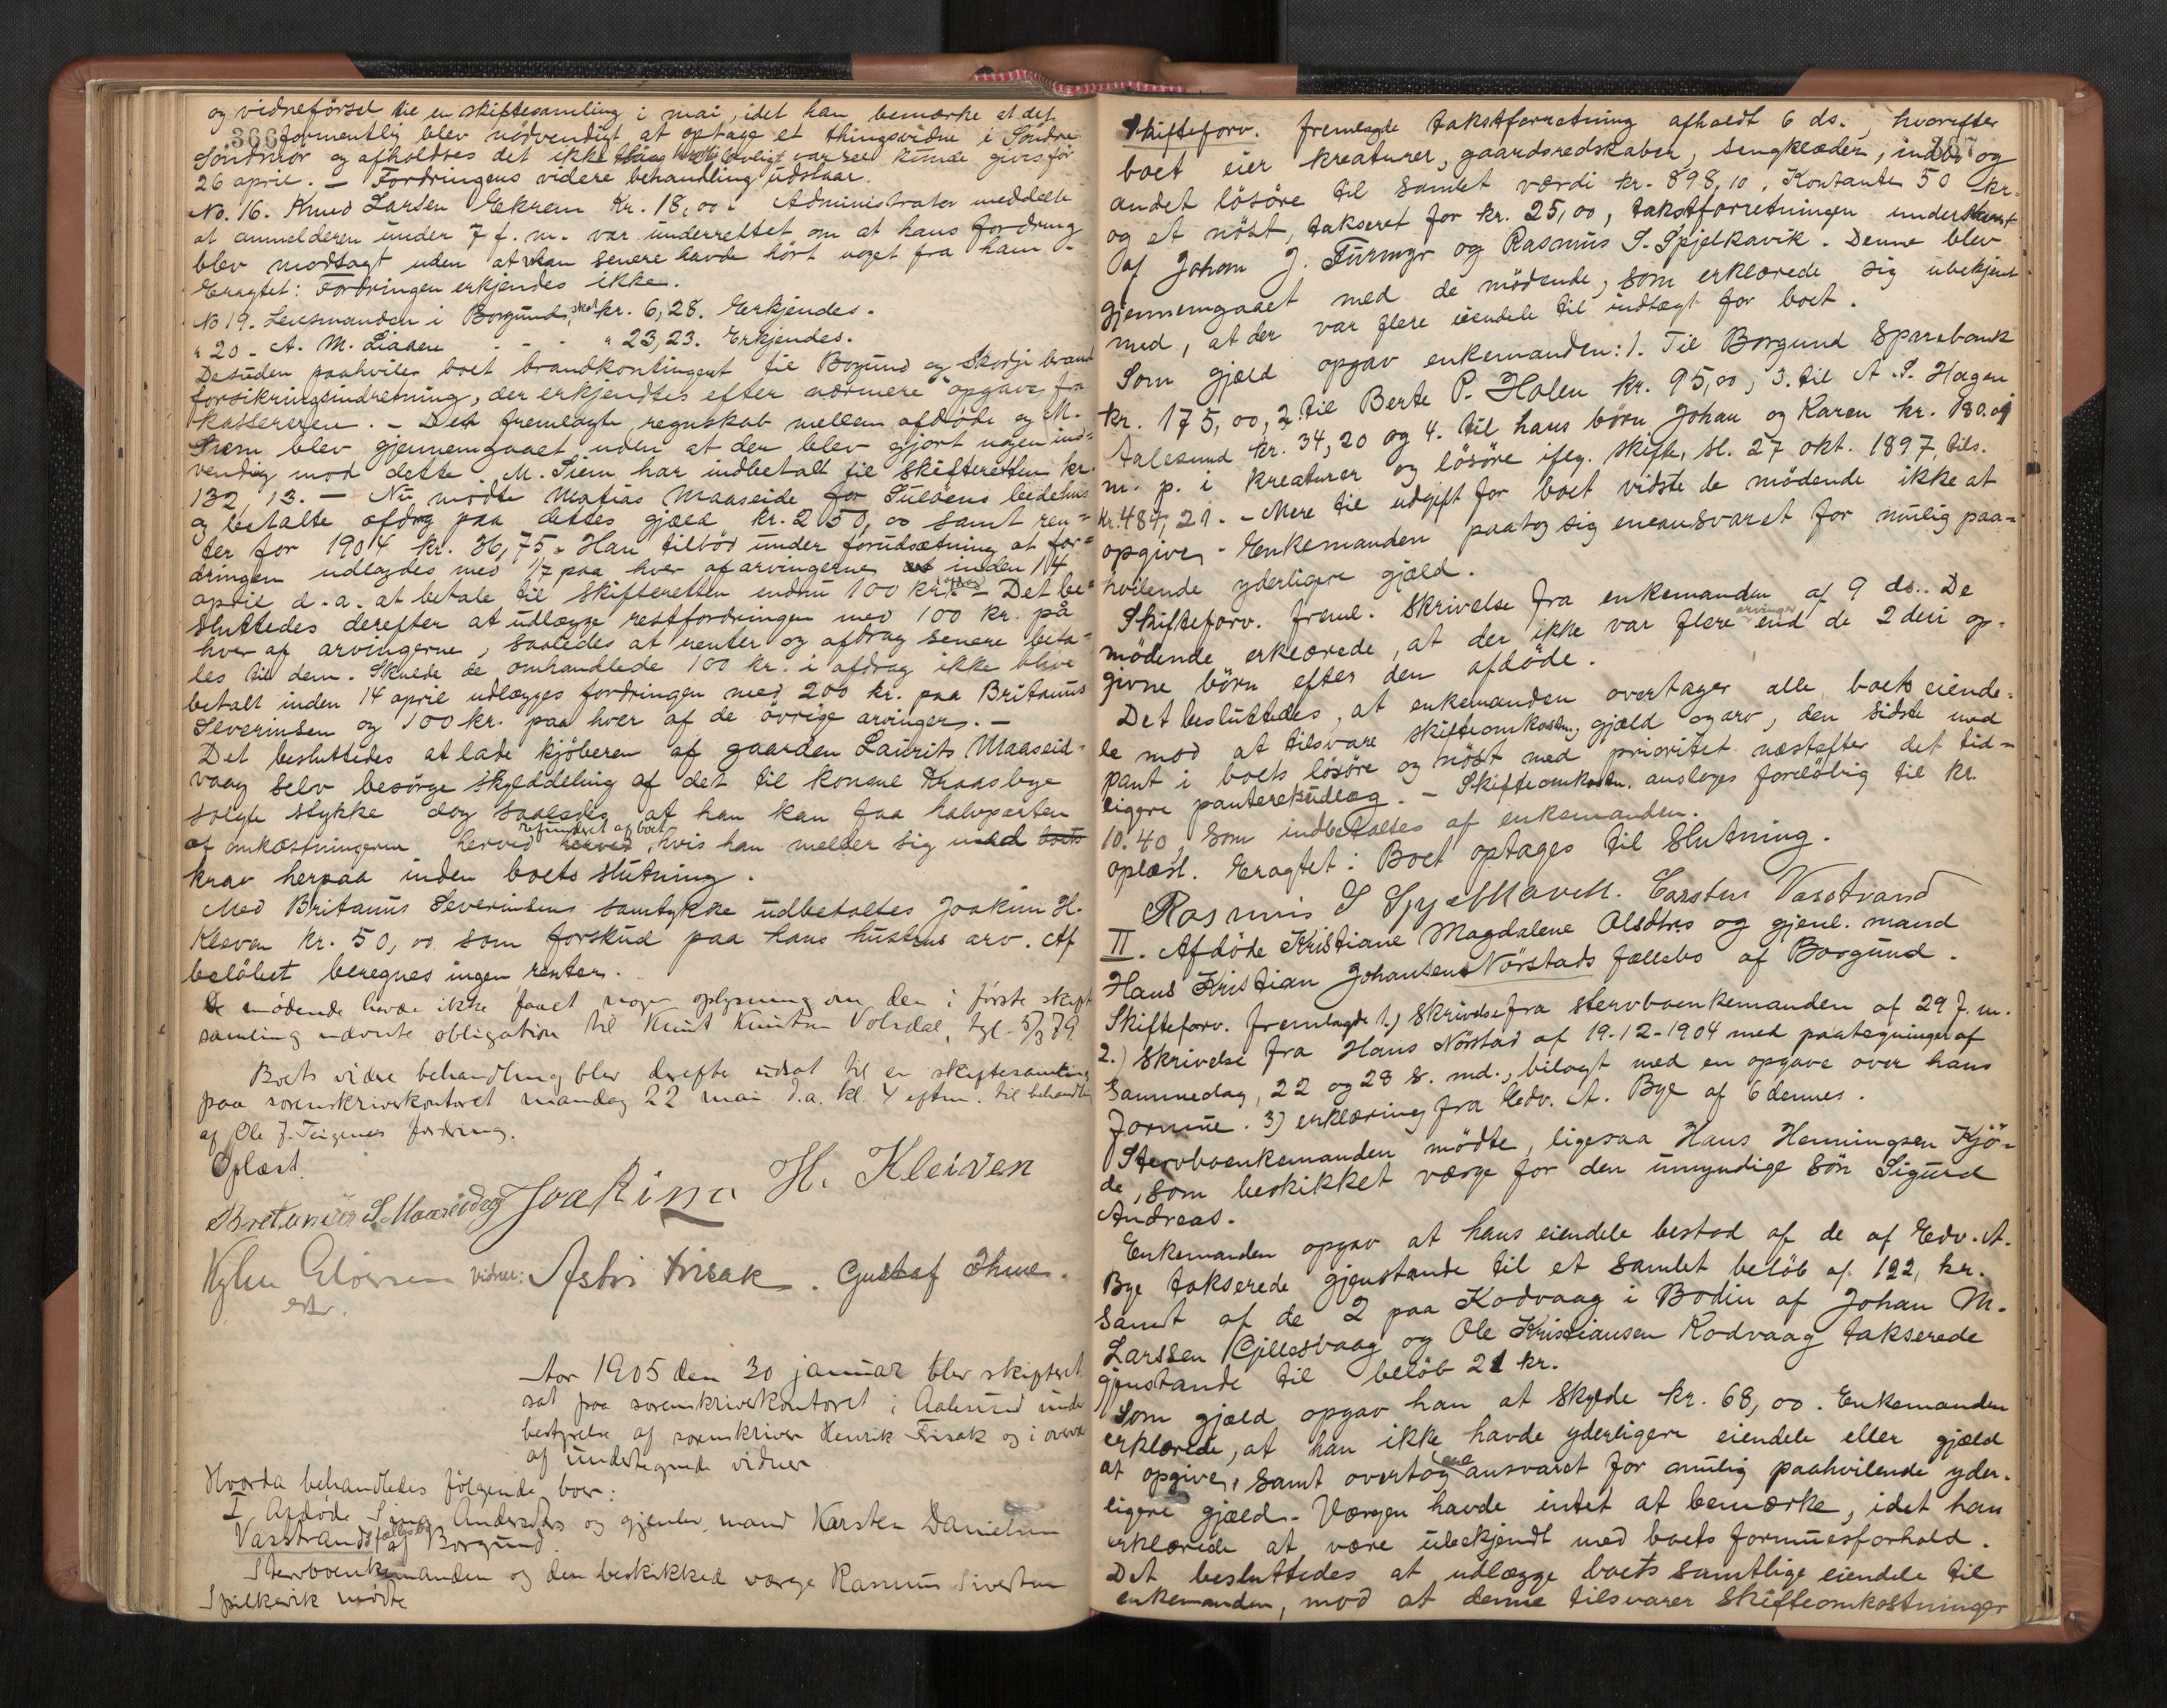 og vidneførsel til en skiftesamling i mai, idet han bemærke at det
366 formentlig blev nødvendigt at optage et thingsvidne i Søndre
Søndmør og afholdtes det ikke var sees kunde gives før
26 april. – Fordringens videre behandling udstaar.
No. 16. Knud Larsen Ekrem Kr. 18,00. Administrator meddelte
at anmelderen under 7 f. m. var underrettet om at hans fordring
blev modsagt uden at han senere havde hørt noget fra ham.
Eragtet: Fordringen erkjendes ikke.
No 19. Lensmanden i Borgund, skat kr. 6,28. Erkjendes.
" 20 - A. M. Liaaen - - - " 23,23. Erkjendes.
Desuden paahviler boet brandkontingent til Borgund og Skodje brand
forsikringsindretning, der erkjendtes efter nærmere opgave fra
kassereren. – Det fremlagte regnskab mellem afdøde og M.
Siem blev gjennemgaaet uden at der blev gjort nogen ind=
vending mod dette. M. Siem har indbetalt til skifteretten kr.
132,13. – Nu mødte Matias Maaseide for Sulöens bedehus
og betalte afdrag paa dettes gjæld kr. 250,00 samt ren=
ter for 1904 kr. 36,75. Han tilbød under forudsætning at for=
dringen udlagdes med 1/7 paa hver af arvingerne inden 14
april d. a. at betale til skifteretten endnu 100 kr. – Det be=
sluttedes derefter at udlægge restfordringen med 100 kr. på
hver af arvingerne, saaledes at renter og afdrag senere beta=
les til dem. Skulde de omhandlede 100 kr. i afdrag ikke blive
betalt inden 14 april udlægges fordringen med 200 kr. paa Britanus
Severinsen og 100 kr. paa hver af de øvrige arvinger. –
Det besluttedes at lade kjøberen af gaarden Laurits Maaseid=
vaag selv besørge skylddeling af det til konsul Kraasbye
solgte stykke dog saaledes at han kan faa halvparten
af omkostningerne herved refunderet af boet, hvis han melder sig med boets
krav herpaa inden boets slutning.
Med Britanus Severinsens samtykke udbetaltes Joakim H.
Kleven kr. 50,00 som forskud paa hans hustrus arv. Af
beløbet beregnes ingen renter.
De mødende havde ikke faaet nogen oplysning om den i første skift
samling nævnte obligation til Knut Knutsen Volsdal, tgl. 5/3 79.
Boets videre behandling blev derefter udsat til en skiftesamling
paa sorenskriverkontoret mandag 22 mai d.a. kl. 4 eftm. til behandling
af Ole J. Teigenes fordring.
Oplæst.
Bretanius S. Maaseidvag Joakim H. Kleiven
vidner: Astri Frisak. Gustaf Thue.
Aar 1905 den 30 januar blev skifteret
sat paa sorenskriverkontoret i Aalesund under
bestyrelse af sorenskriver Henrik Frisak og i overvær
af undertegnede vidner
Hvorda behandledes følgende boer:
I Afdøde Andersdtrs og gjenlev. mand Karsten Danielsen
Vasstrands fællesbo af Borgund.
Stervboenkemanden og den beskikked værge Rasmus Sivertsen
Spilkevik mødte
Skifteforv. fremlagde takstforretning afholdt 6 ds., hvorefter
boet eier kreaturer, gaardsredskaber, sengklæder, indbo og
andet løsøre til samlet værdi kr. 898,10, Kontanter 50 kr.
og et nøst, takseret for kr. 25,00, takstforretningen underskrevet
af Johan J. Furmyr og Rasmus S. Spjelkavik. Denne blev
gjennemgaaet med de mødende, som erklærede sig ubekjent
med, at der var flere eiendele til indtægt for boet.
Som gjæld opgav enkemanden: 1. Til Borgund Sparebank
kr. 175,00, 2. til Berte P. Holen kr. 95,00, 3. til A. S. Hagen
Aalesund kr. 34,20 og 4. til hans børn Johan og Karen kr. 180.01
m. p. i kreaturer og løsøre iflg. skifte, sl. 27 okt. 1897, tils.
kr. 484,21. – Mere til udgift for boet vidste de mødende ikke at
opgive. Enkemanden paatog sig eneansvaret for mulig paa=
hvilende yderligere gjæld.
Skifteforv. freml. skrivelse fra enkemanden af 9 ds.. De
mødende erklærede, at der ikke var flere arvinger end de 2 deri op=
givne børn efter den afdøde.
Det besluttedes, at enkemanden overtager alle boets eiende=
le mod at tilsvare skifteomkostn., gjæld og arv, den sidste med
pant i boets løsøre og nøst med prioritet næstefter det tid=
ligere panterekudlæg. – Skifteomkostn. ansloges foreløbig til kr.
10.40, som indbetaltes af enkemanden.
oplæst. Eragtet: Boet optages til slutning.
Rasmus S Spjelkavik. Carsten Vasstrand
II. Afdøde Kristiane Magdalene Olsdtrs og gjenl. mand
Hans Kristian Johansens Nørstads fællesbo af Borgund.
Skifteforv. fremlagde 1.) Skrivelse fra stervboenkemanden af 29 f. m.
2.) skrivelse fra Hans Nørstad af 19-12-1904 med paategninger af
sammedag, 22 og 28 s. md., bilagt med en opgave over hans
formue. 3) erklæring fra Edv. A. Bye af 6 dennes.
Stervboenkemanden mødte, ligesaa Hans Henningsen Kjø=
de, som beskikket værge for den umyndige søn Sigurd
Andreas.
Enkemanden opgav at hans eiendele bestod af de af Edv. A.
Bye takserede gjenstande til et samlet beløb af 122, kr.
samt af de 2 paa Kodvaag i Bodin af Johan M.
Larssen Gjillesvaag og Ole Kristiansen Kodvaag takserede
gjenstande til beløb 21 kr.
Som gjæld opgav han at skylde kr. 68,00. Enkemanden
erklærede, at han ikke havde yderligere eiendele eller gjæld
at opgive, samt overtog eneansvaret for mulig paahvilende yder=
ligere gjæld. Værgen havde intet at bemærke, idet han
erklærede at være ubekjendt med boets formuesforhold.
Det besluttedes at udlægge boets samtlige eiendele til
enkemanden, mod at denne tilsvarer skifteomkostninger